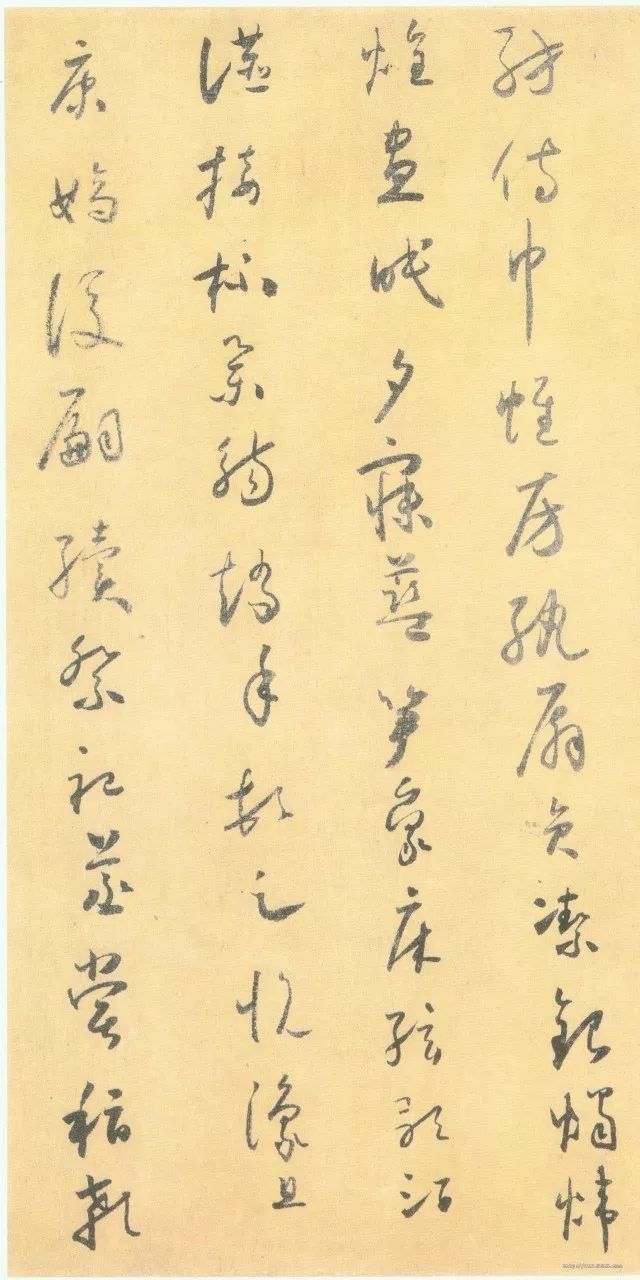 紡侍巾帷房紈扇員潔銀燭煒
煌晝眠夕寐藍笋象床絃歌酒
讌接杯舉觴矯手頓足悅豫且
康嫡後嗣續祭祀蒸嘗稽顙